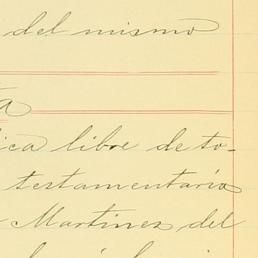 del mismo
a
ica libre de to-
testamentario
Martines del